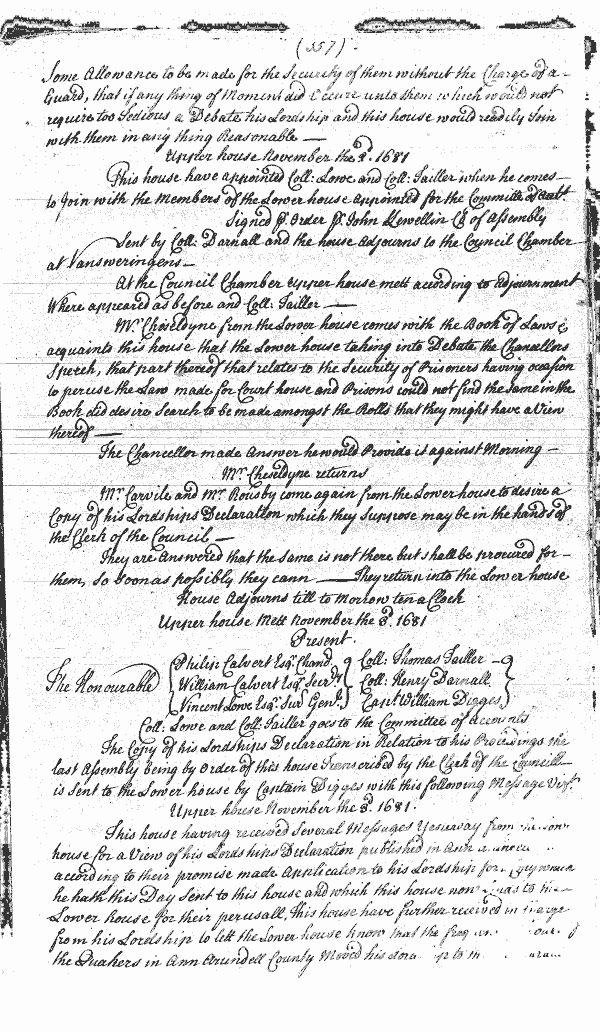 (357).
Some Allowance to be made for the Security of them without the Charge of a
Guard, that if any thing of Moment did Occure unto them which would not
require too Tedious a Debate his Lordship and this house would readily Join
with them in any thing Reasonable —
Upper house November the 2d. 1681
This house have appointed Coll: Lowe and Coll: Tailler when he comes
to Join with the Members of the Lower house Appointed for the Committe of
Signed P. Order P. John Llewellin Cl: of Assembly
Sent by Coll: Darnall and the house Adjourns to the Council Chamber
at Vansweringens —
At the Council Chamber Upper house mett according to Adjournment
Where appeared as before and Coll: Tailler —
Mr. Cheseldyne from the Lower house comes with the Book of Laws &
acquaints this house that the Lower house taking into Debate the Chancellors
Speech, that part thereof that relates to the Security of Prisoners having occasion
to peruse the Law made for Court house and Prisons could not find the same in the
Book did desire Search to be made amongst the Rolls that they might have a View
thereof —
The Chancellor made Answer he would Provide it against Morning —
Mr. Cheseldyne returns
Mr. Carvile and Mr. Rousby come again from the Lower house to desire a
Copy of his Lordships Declaration which they suppose may be in the hands of
the Clerk of the Council —
They are Answered that the same is not there but shall be procured for
them, so soon as possibly they cann — They return into the Lower house
House Adjourns till to Morrow ten a Clock
Upper house Mett November the 3d. 1681
Present.
The Honourable
Philip Calvert Esqr. Chanc.
William Calvert Esqr. Secry
Vincent Lowe Esqr. Surr Genl.
Coll: Thomas Tailler
Coll: Henry Darnall
Capt William Digges
Coll: Lowe and Coll: Tailler goes to the Committee of Accounts
The Copy of his Lordships Declaration in Relation to his Proceedings the
last Assembly being by Order of this house Transcribed by the Clerk of the Councill
is sent to the Lower house by Captain Digges with this following Message Vizt.
Upper house November the 3d. 1681.
This house having received Several Messages Yesterday from the
house for a View of his Lordships Declaration published in Ann
according to their promise made Application to his Lordship for
he hath this Day Sent to this house and which this house now
Lower house for their perusall This house have further received in Charge
from his Lordship to lett the Lower house know that the
the Quakers in Ann Arundell County Moved his